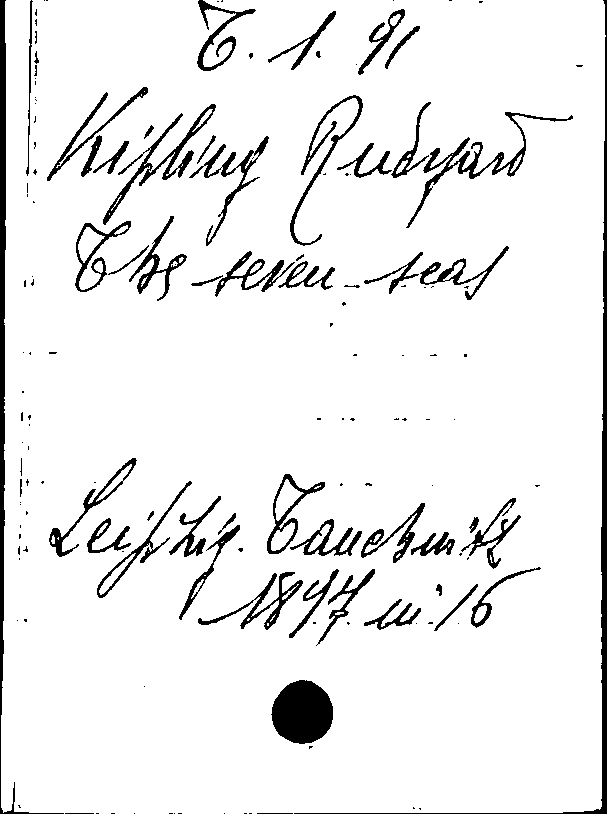 T. 1. 91
Kipling Rudyard
The seven seas
Leipzig. Tauchnitz
1897 in 16